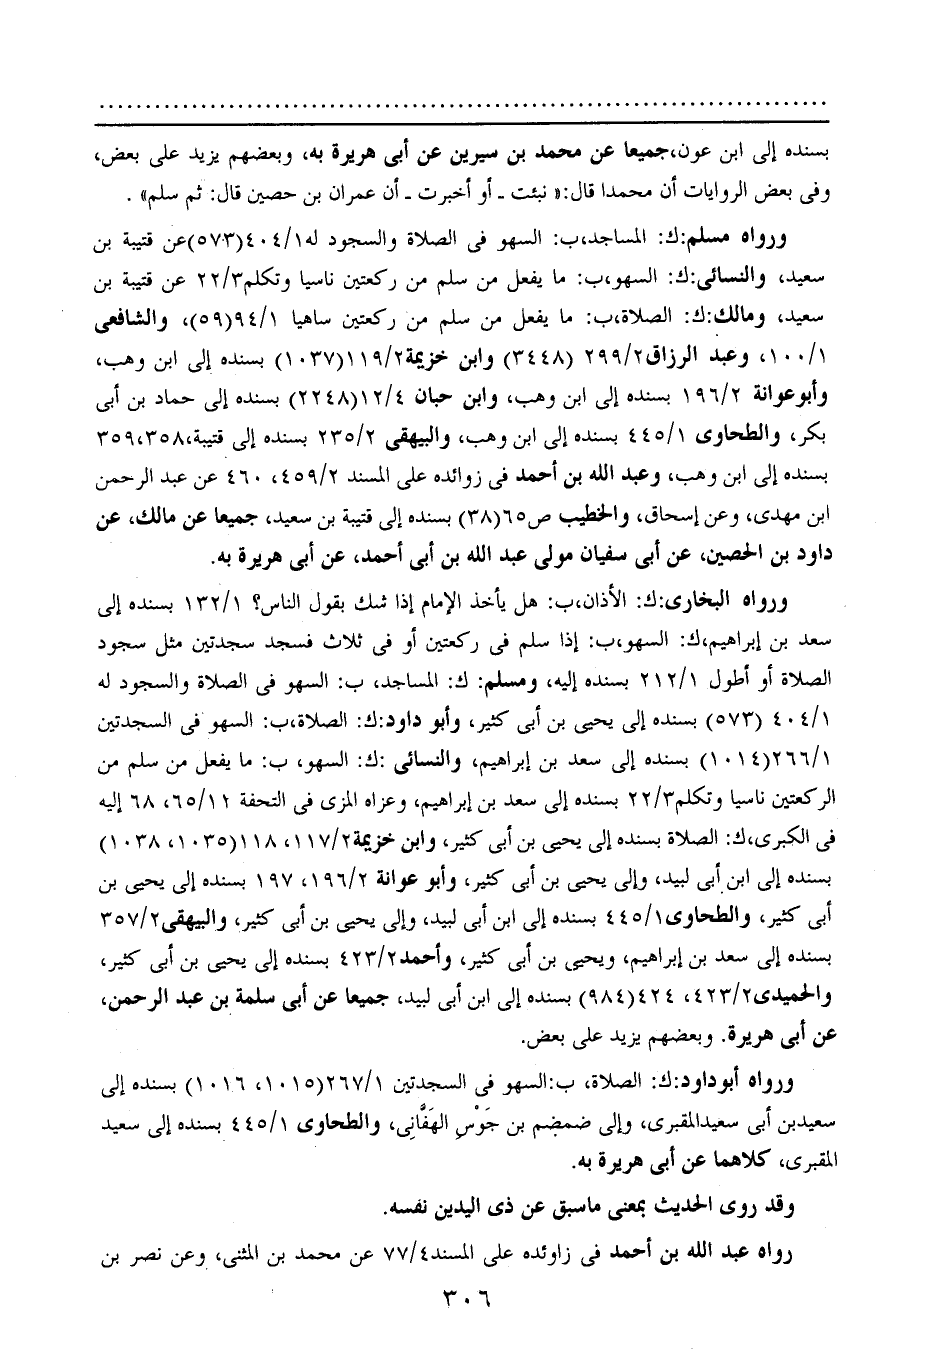 بسنده إلى ابن عون،جميعا عن محمد بن سيرين عن أبى هريرة به، وبعضهم يزيد على بعض،
وفى بعض الروايات أن محمدا قال:« نبئت ـ أو أخبرت ـ أن عمران بن حصين قال: ثم سلم» .
ورواه مسلم:ك: المساجد،ب: السهو فى الصلاة والسجود له٤٠٤/١(٥٧٣)عن قتيبة بن
سعيد، والنسائى:ك: السهو،ب: ما يفعل من سلم من ركعتين ناسيا وتكلم٢٢/٣ عن قتيبة بن
سعيد، ومالك:ك: الصلاة،ب: ما يفعل من سلم من ركعتين ساهيا ٩٤/١(٥٩)، والشافعى
١٠٠/١، وعبد الرزاق٢٩٩/٢ (٣٤٤٨) وابن خزيمة١١٩/٢(١٠٣٧) بسنده إلى ابن وهب،
وأبوعوانة ١٩٦/٢ بسنده إلى ابن وهب، وابن حبان ١٢/٤(٢٢٤٨) بسنده إلى حماد بن أبى
بكر، والطحاوى ٤٤٥/١ بسنده إلى ابن وهب، والبيهقى ٢٣٥/٢ بسنده إلى قتيبة،٣٥٩،٣٥٨
بسنده إلى ابن وهب، وعبد الله بن أحمد فى زوائده على المسند ٤٥٩/٢، ٤٦٠ عن عبد الرحمن
ابن مهدى، وعن إسحاق، والخطيب ص٦٥(٣٨) بسنده إلى قتيبة بن سعيد، جميعا عن مالك، عن
داود بن الحصين، عن أبى سفيان مولى عبد الله بن أبى أحمد، عن أبى هريرة به.
ورواه البخارى:ك: الأذان،ب: هل يأخذ الإمام إذا شك بقول الناس؟ ١٣٢/١ بسنده إلى
سعد بن إبراهيم،ك: السهو،ب: إذا سلم فى ركعتين أو فى ثلاث فسجد سجدتين مثل سجود
الصلاة أو أطول ٢١٢/١ بسنده إليه، ومسلم: ك: المساجد، ب: السهو فى الصلاة والسجود له
٤٠٤/١ (٥٧٣) بسنده إلى يحيى بن أبى كثير، وأبو داود:ك: الصلاة،ب: السهو فى السجدتين
٢٦٦/١(١٠١٤) بسنده إلى سعد بن إبراهيم، والنسائى :ك: السهو، ب: ما يفعل من سلم من
الركعتين ناسيا وتكلم٢٢/٣ بسنده إلى سعد بن إبراهيم، وعزاه المزى فى التحفة ٦٥/١١، ٦٨ إليه
فى الكبرى،ك: الصلاة بسنده إلى يحيى بن أبى كثير، وابن خزيمة١١٧/٢، ١١٨(١٠٣٥، ١٠٣٨)
بسنده إلى ابن أبى لبيد، وإلى يحيى بن أبى كثير، وأبو عوانة ١٩٦/٢، ١٩٧ بسنده إلى يحيى بن
أبى كثير، والطحاوى٤٤٥/١ بسنده إلى ابن أبى لبيد، وإلى يحيى بن أبى كثير، والبيهقى٣٥٧/٢
بسنده إلى سعد بن إبراهيم، ويحيى بن أبى كثير، وأحمد٤٢٣/٢ بسنده إلى يحيى بن أبى كثير،
والحميدى٤٢٣/٢، ٤٢٤(٩٨٤) بسنده إلى ابن أبى لبيد، جميعا عن أبى سلمة بن عبد الرحمن،
عن أبى هريرة. وبعضهم يزيد على بعض.
ورواه أبوداود:ك: الصلاة، ب:السهو فى السجدتين ٢٦٧/١(١٠١٥، ١٠١٦) بسنده إلى
سعيدبن أبى سعيدالمقبرى، وإلى ضمضم بن جَوْسٍ الهَفَّانِى، والطحاوى ٤٤٥/١ بسنده إلى سعيد
المقبرى، كلاهما عن أبى هريرة به.
وقد روى الحديث بمعنى ماسبق عن ذى اليدين نفسه.
رواه عبد الله بن أحمد فى زاوئده على المسند٧٧/٤ عن محمد بن المثنى، وعن نصر بن
٣٠٦